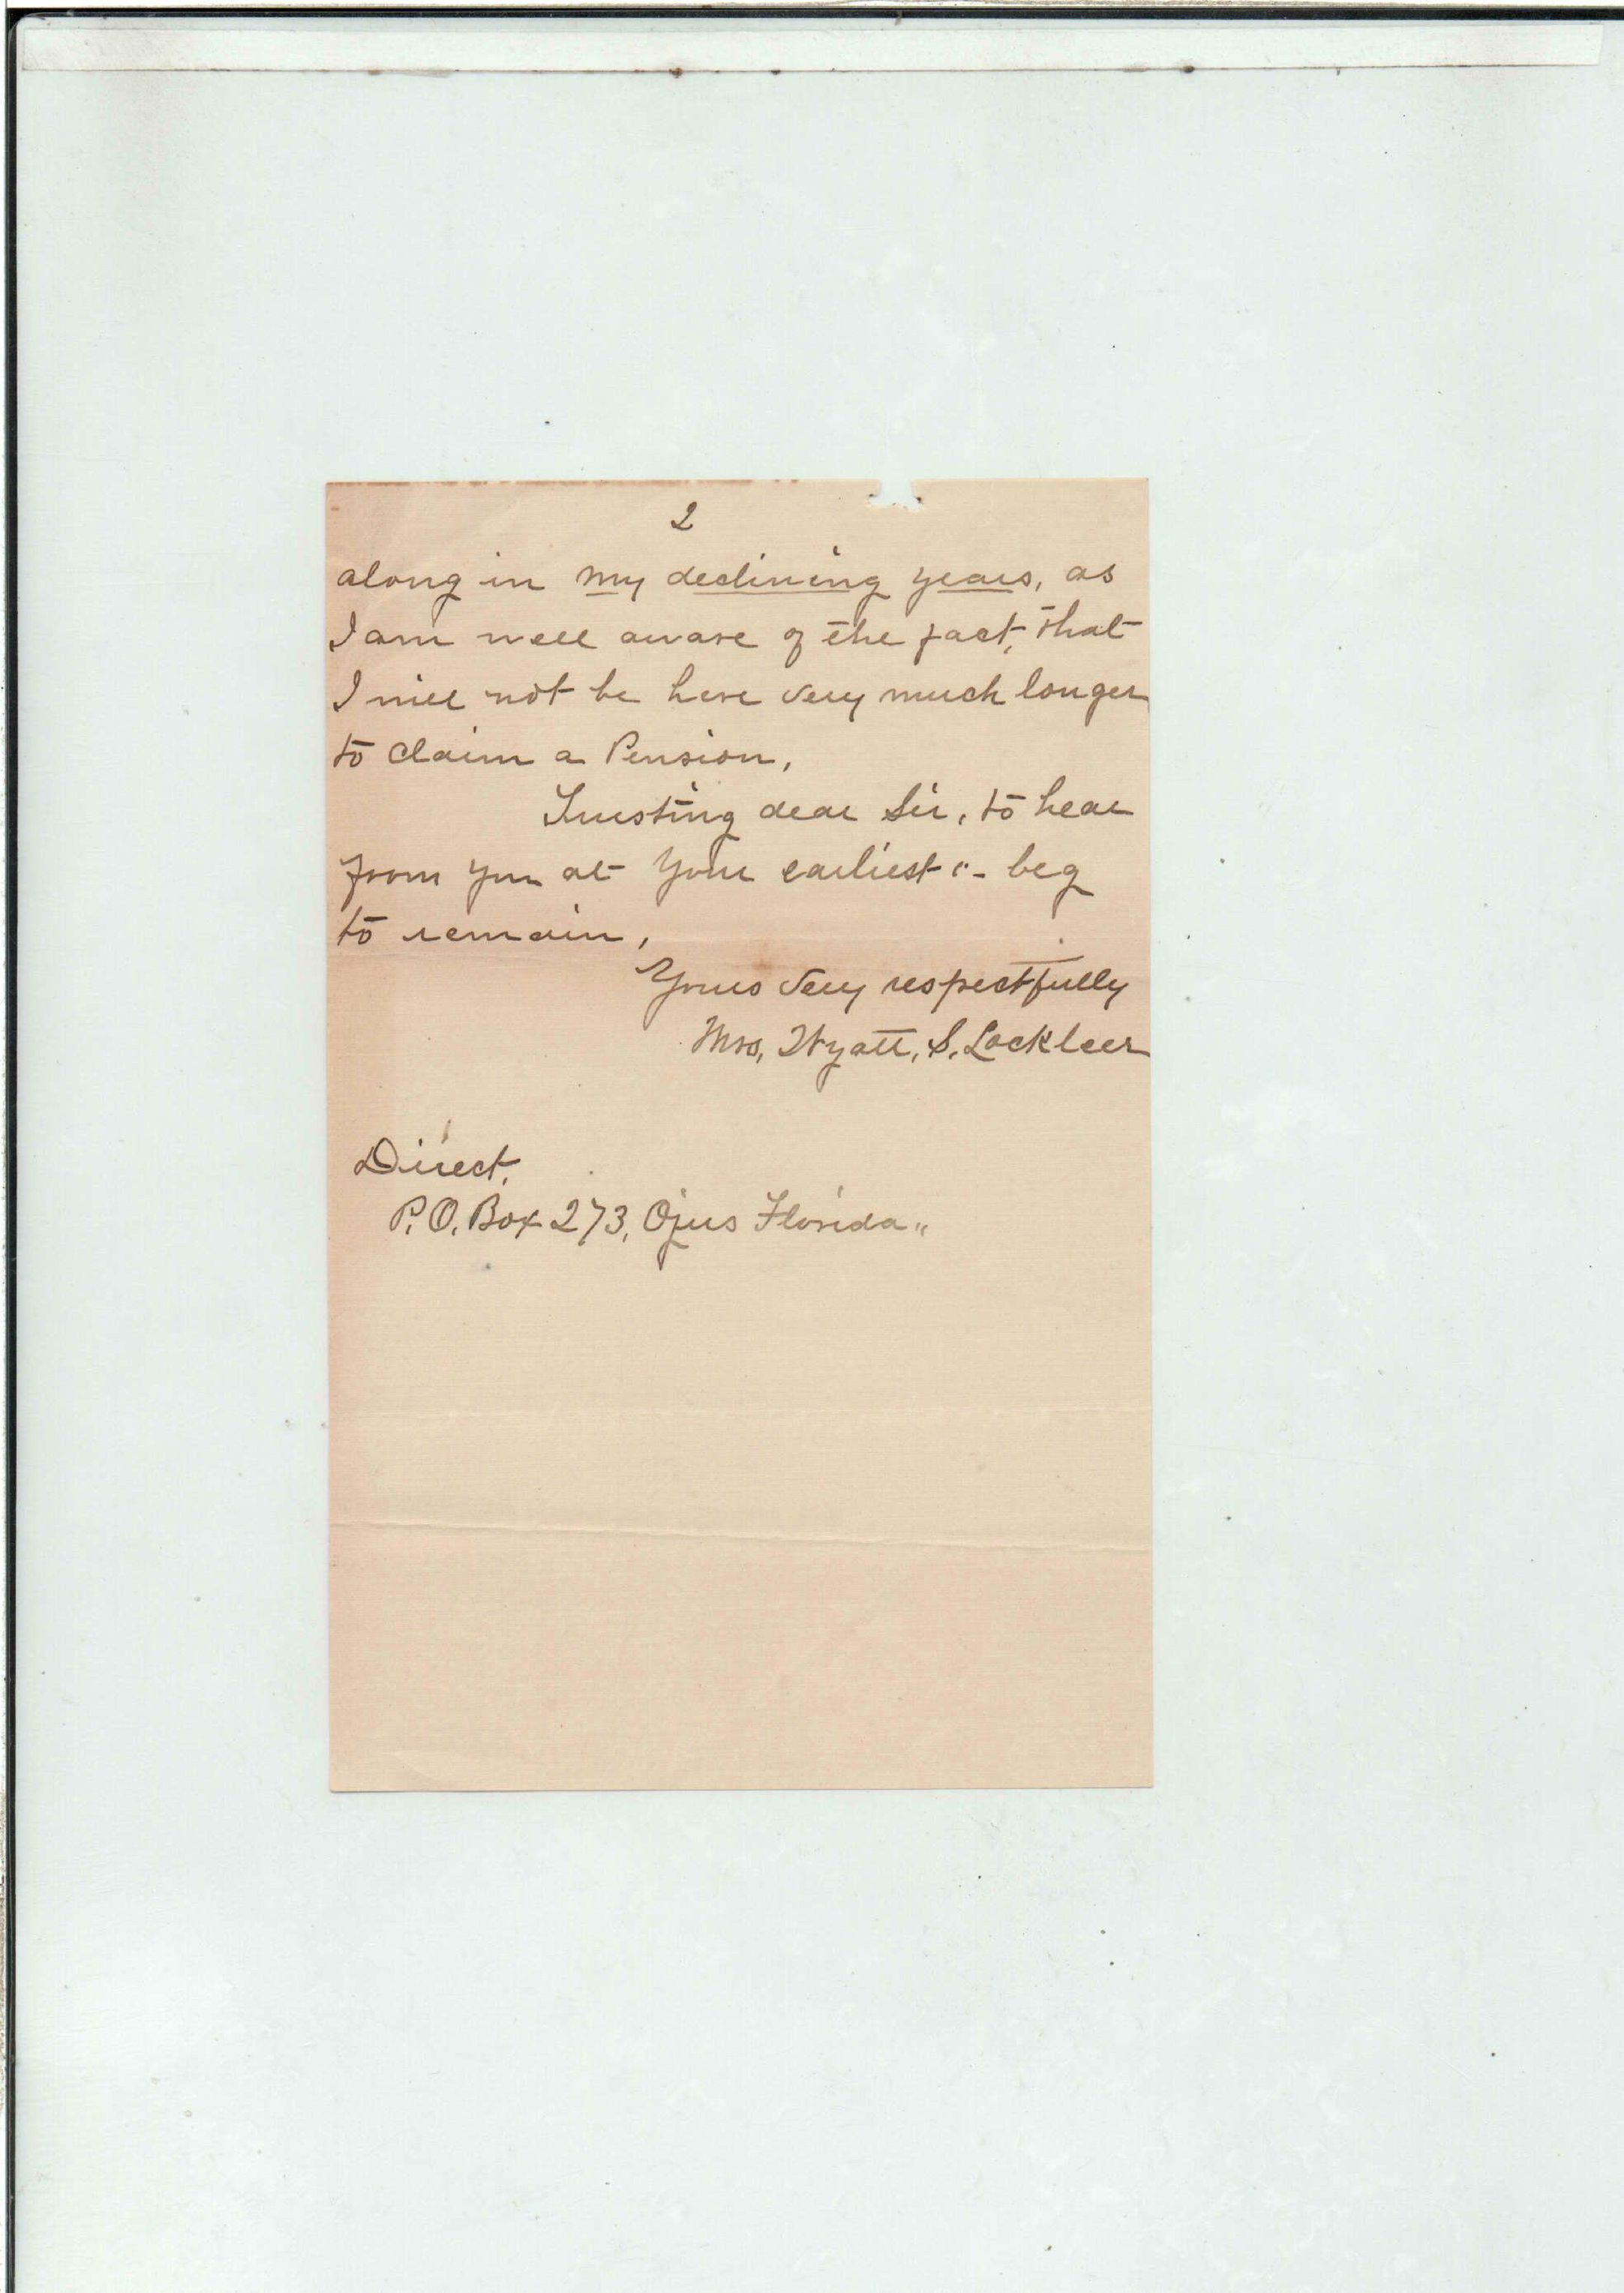 2
along in my declining years, as
I am well aware of the fact, that
I will not be here very much longer
to claim a Pension,
Trusting dear Sir, to hear
from you at your earliest - beg
to remain,
Yours very respectfully
Mrs, Wyatt, S. Lockleer
Direct.
P. O. Box 273, Ojus Florida"